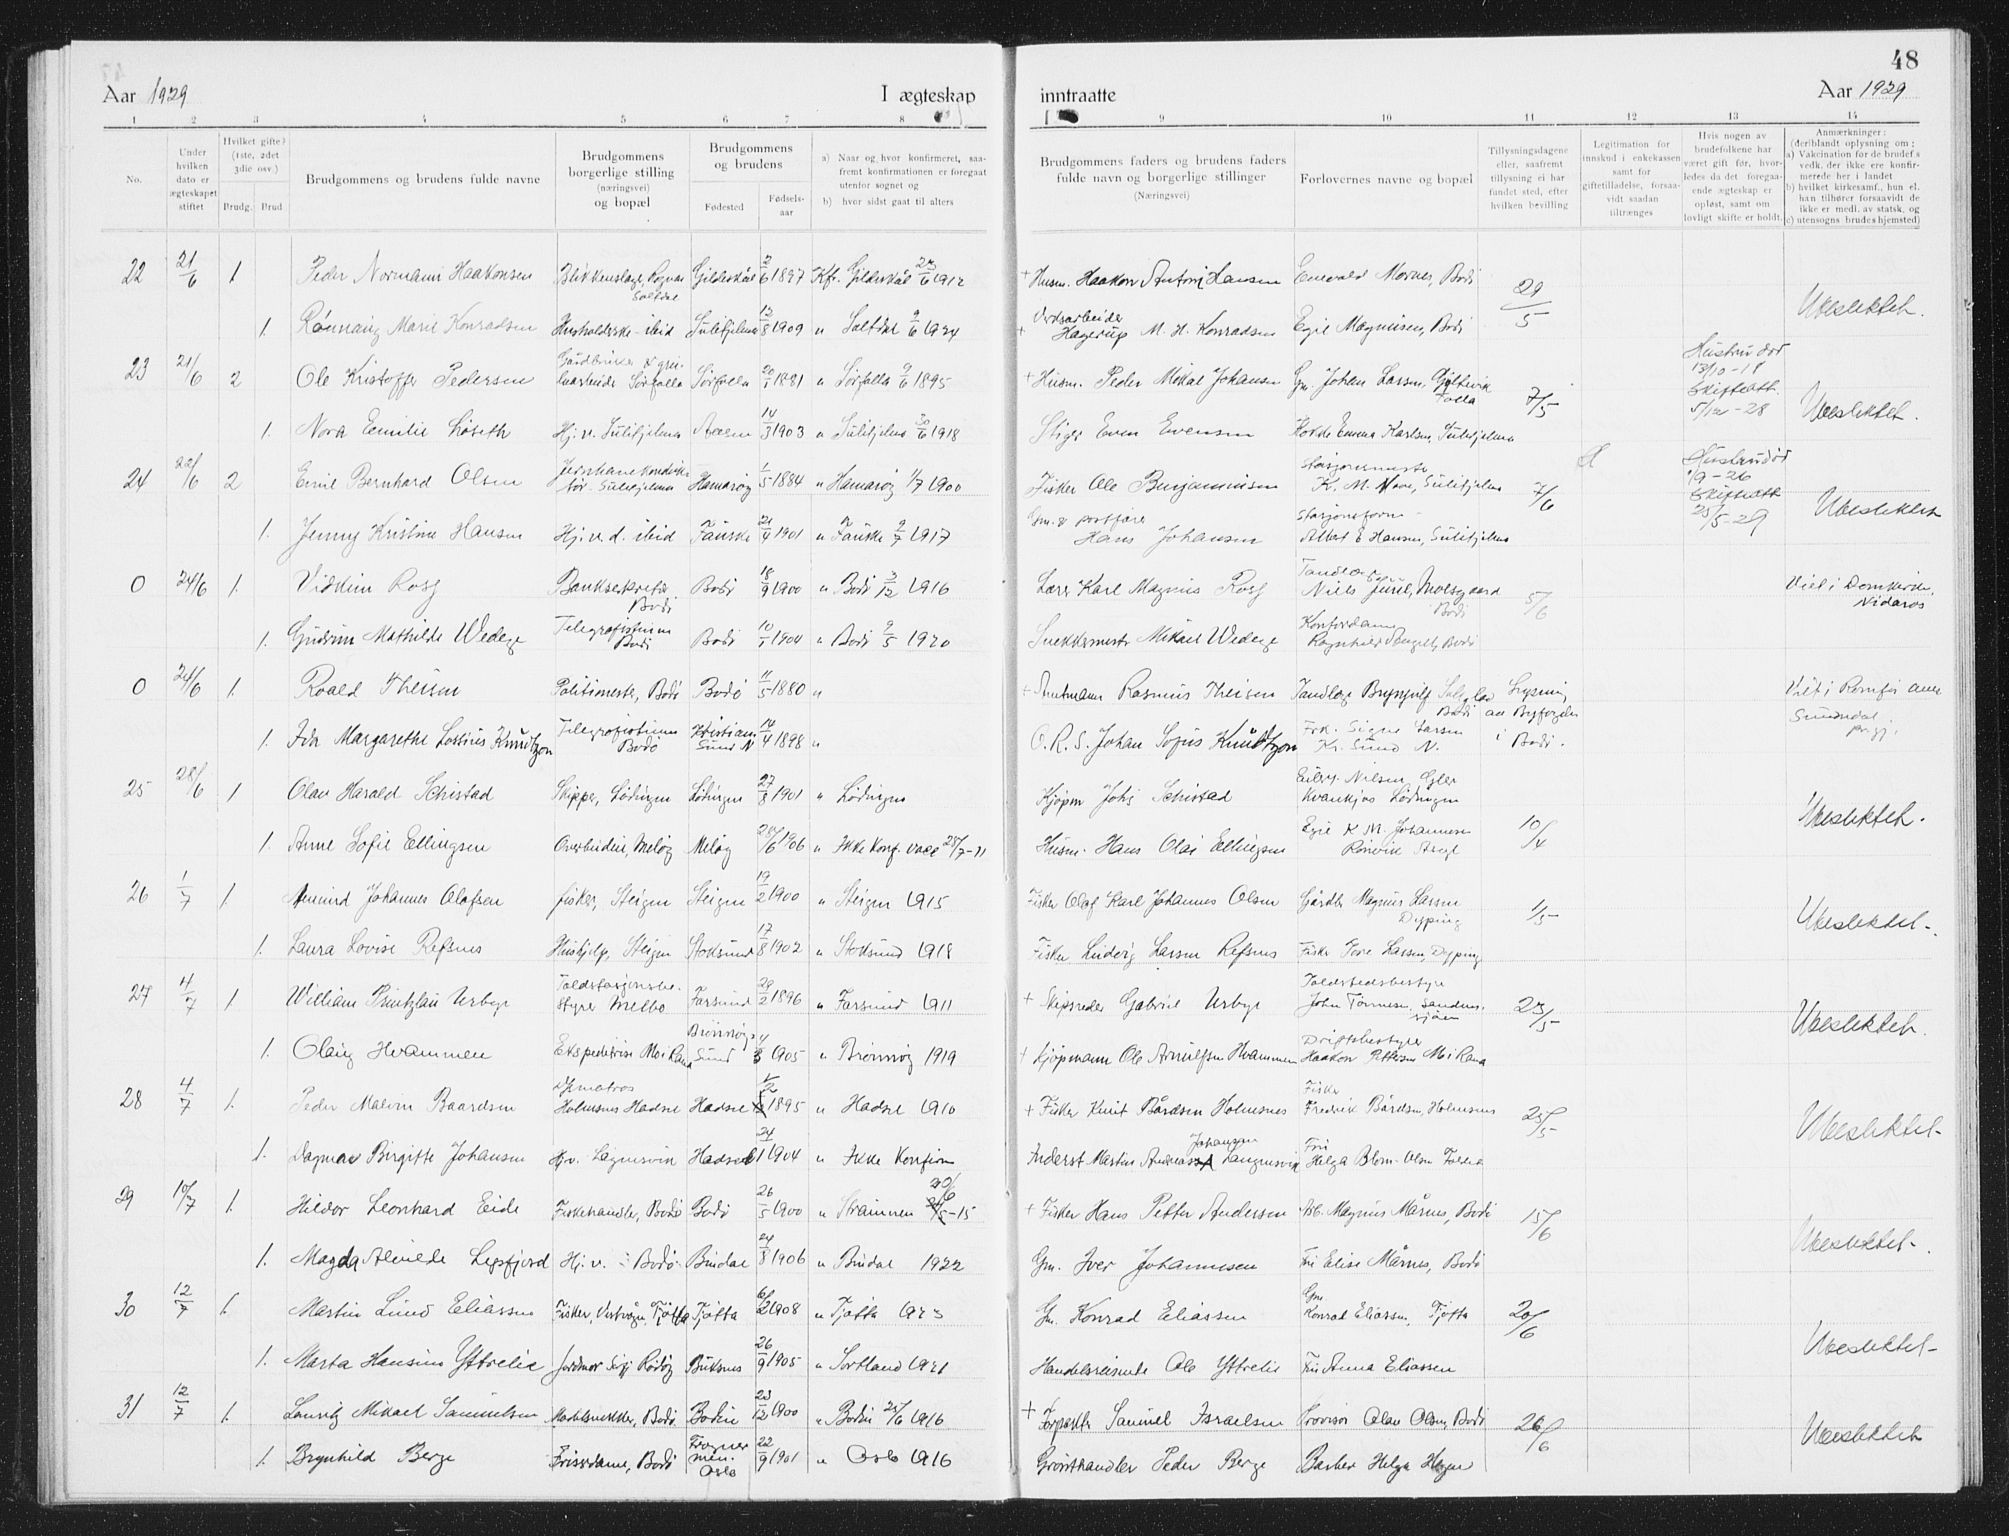 48
Aar 1929 I ægteskap
inntraatte Aar 1929
1 2 3 4 5 6 7 8
9 10 11 12 13 14
No.
Under hvilken dato er ægteskapet stiftet
Hvilket gifte? (1ste, 2det 3die osv.)
Brudg. Brud
Brudgommens og brudens fulde navne
Brudgommens borgerlige stilling (næringsvei) og bopæl
Brudgommens og brudens
Fødested Fødselsaar
a) Naar og hvor konfirmeret, saafremt konfirmationen er foregaat utenfor sognet og
b) hvor sidst gaat til alters
Brudgommens faders og brudens faders fulde navn og borgerlige stillinger
(Næringsvei)
Forlovernes navne og bopæl
Tillysningsdagene eller, saafremt tillysning ei har fundet sted, efter hvilken bevilling
Legitimation for innskud i enkekassen samt for giftetilladelse, forsaavidt saadan tiltrænges
Hvis nogen av brudefolkene har været gift før, hvorledes da det foregaaende ægteskap er opløst, samt om lovligt skifte er holdt.
Anmerkninger: (deriblandt oplysning om;
a) Vakcination for de brudef s vedk. der ikke ere konfirmerede her i landet
b) hvilket kirkesamf., hun el. han tilhører forsaavidt de ikke er medl. av statsk. og
c) utensogns brudes hjemsted)
22 21/6 1 Peder Normann Haakonsen Blikkenslager, Rognan Saltdal Gildeskål 2/6 1897 Kfr. Gildeskål 23/6 1912 + Husm. Haakon Antoni Hansen Enevald Mornes, Bodö 29/5 Ubeslektet.
1. Rönnaug Marie Konradsen Husholderske - ibid Sulitjelma 13/8 1909 " Saltdal 9/6 1924 + Verksarbeider Hagerup M. H. Konradsen Egil Magnussen, Bodö
23 21/6 2 Ole Kristoffer Pedersen Sørfolla Sørfolla 20/1 1881 " Sørfolla 9/6 1895 + Husm. Peder Mikal Johansen Gm. Johan Larsen, Folla 7/5 Hustru död 13/10-18 Skifteatt. 5/12-28 Ubeslektet.
1. Nora Emilie Löseth Hj. v. Sulitjelma 14/3 1903 " Sulitjelma 30/6 1918 Stiger Even Evensen Kokke Emma Karlsen, Sulitjelma
24 22/6 2 Emil Bernhard Olsen Jernbanekonduktør Sulitjelma Hamarøy 1/5 1884 " Hamarøy 1/7 1900 Fisker Ole Benjaminsen Stasjonsmester K. M. Sulitjelma 7/6 Hustru död 1/9-26 Skifteatt 25/5-29 Ubeslektet
1. Jenny Kristine Hansen Hj. v. d. ibid Fauske 21/4 1901 " Fauske 9/7 1917 Gm. & postfører Hans Johansen Stasjonsform. Albert E Hansen, Sulitjelma
0 24/6 1. Vidkun Rosg Banksekretær Bodö Bodö 18/9 1900 " Bodö 3/12 1916 Lærer Karl Magnus Rosg Tandlæge Niels Juul, Bodö 5/6 Viet i Domkirke, Nidaros
1. Gudrun Mathilde Wedege Telegrafistinne Bodö Bodö 10/1 1904 " Bodö 9/5 1920 Snekkermestr Mikael Wedege Ragnhild Bodö
0 24/6 1. Roald Theisen Politimester, Bodö Bodö 11/5 1880 " + Amtmann Rasmus Theisen Tandlæge Brynjulf Bodö Lysning av Byfogden i Bodö. Viet i Romfo Sunndal
1. Ida Margarethe Lossius Knudtzon Telegrafistinne Bodö Kristiansund N 14/4 1898 " O.R.S. Johan Sofus Knudtzon Frk. Signe Larsen Kr. Sund N.
25 28/6 1 Olav Harald Schistad Skipper, Lødingen Lødingen 27/8 1901 " Lødingen Kjöpm Johs Schistad Nilsen Lødingen 10/4 Ubeslektet.
1. Anne Sofie Ellingsen Meløy Meløy 28/6 1906 " Ikke konf. vacc 28/7-11 Husm. Hans Olai Ellingsen Egil K M. Johannesen Rönvik Asyl
26 1/7 1 Amund Johannes Olafsen fisker, Steigen Steigen 19/2 1900 " Steigen 1915 Fisker Olaf Karl Johannes Olsen Gårdbr Magnus Larsen Dypping 1/5 Ubeslektet.
1. Laura Lovise Refsnes Hushjelp, Steigen Stoksund 17/8 1902 " Stoksund 1918 Fisker Ludvig Larsen Refsnes Fisker Tore Larsen, Dypping
27 4/7 1 William Printzlau Urbye Toldstasjonsbestyrer Melbo Farsund 29/2 1896 " Farsund 1911 + Skipsreder Gabriel Urbye Toldstedsbestyrer John Tönnesen, Sandnessjöen 23/5 Ubeslektet.
1. Olaug Hvammen Ekspeditrise Mo i Rana Brönnöysund 4/3 1905 " Brönnöy 1919 + Kjöpmann Ole Arnulfsen Hvammen Driftsbestyrer Haakon Pettersen Mo i Rana
28 4/7 1. Peder Malvin Baardsen Holmsnes Hadsel Hadsel 1/2 1895 " Hadsel 1910 + Fisker Knut Bårdsen Holmsnes Fisker Fredrik Bårdsen, Holmsnes 25/5 Ubeslektet
1. Dagmar Birgitte Johansen Hjv. Hadsel 24/1 1904 " Ikke konfirm Inderst Martin Andreas Johansen Fru Helga Blom-Olsen
29 10/7 1. Hildor Leonhard Eide Fiskehandler, Bodö Bodö 26/5 1900 " Straumen 30/6-15 + Fisker Hans Petter Andersen Arb. Magnus Mårnes, Bodö 15/6 Ubeslektet.
1. Magda Alvilde Lepsfjord Hj. v. Bodö Bindal 24/8 1906 " Bindal 1922 Gm. Iver Johannesen Fru Elise Mårnes, Bodö
30 12/7 1. Martin Lund Eliassen Fisker, Tjøtta Tjøtta 6/2 1908 " Tjøtta 1923 Gm. Konrad Eliassen Gm Konrad Eliassen, Tjøtta 20/6 Ubeslektet
1. Marta Hansine Yttrelie Jordmor Rödöy Buksnes 26/9 1905 " Sortland 1921 Handelsreisende Ole Yttrelie Fru Anna Eliassen
31 12/7 1. Lauritz Mikael Samuelsen Møbelsnekker, Bodö Bodin 23/12 1900 " Bodin 25/6 1916 + Forpakter Samuel Israelsen Provisor Olav Olsen, Bodö 26/6 Ubeslektet
1. Brynhild Berge Frisørdame, Bodö Frogner men. Oslo 22/9 1901 " Oslo 1916 Grönthandler Peder Berge Barber Helge